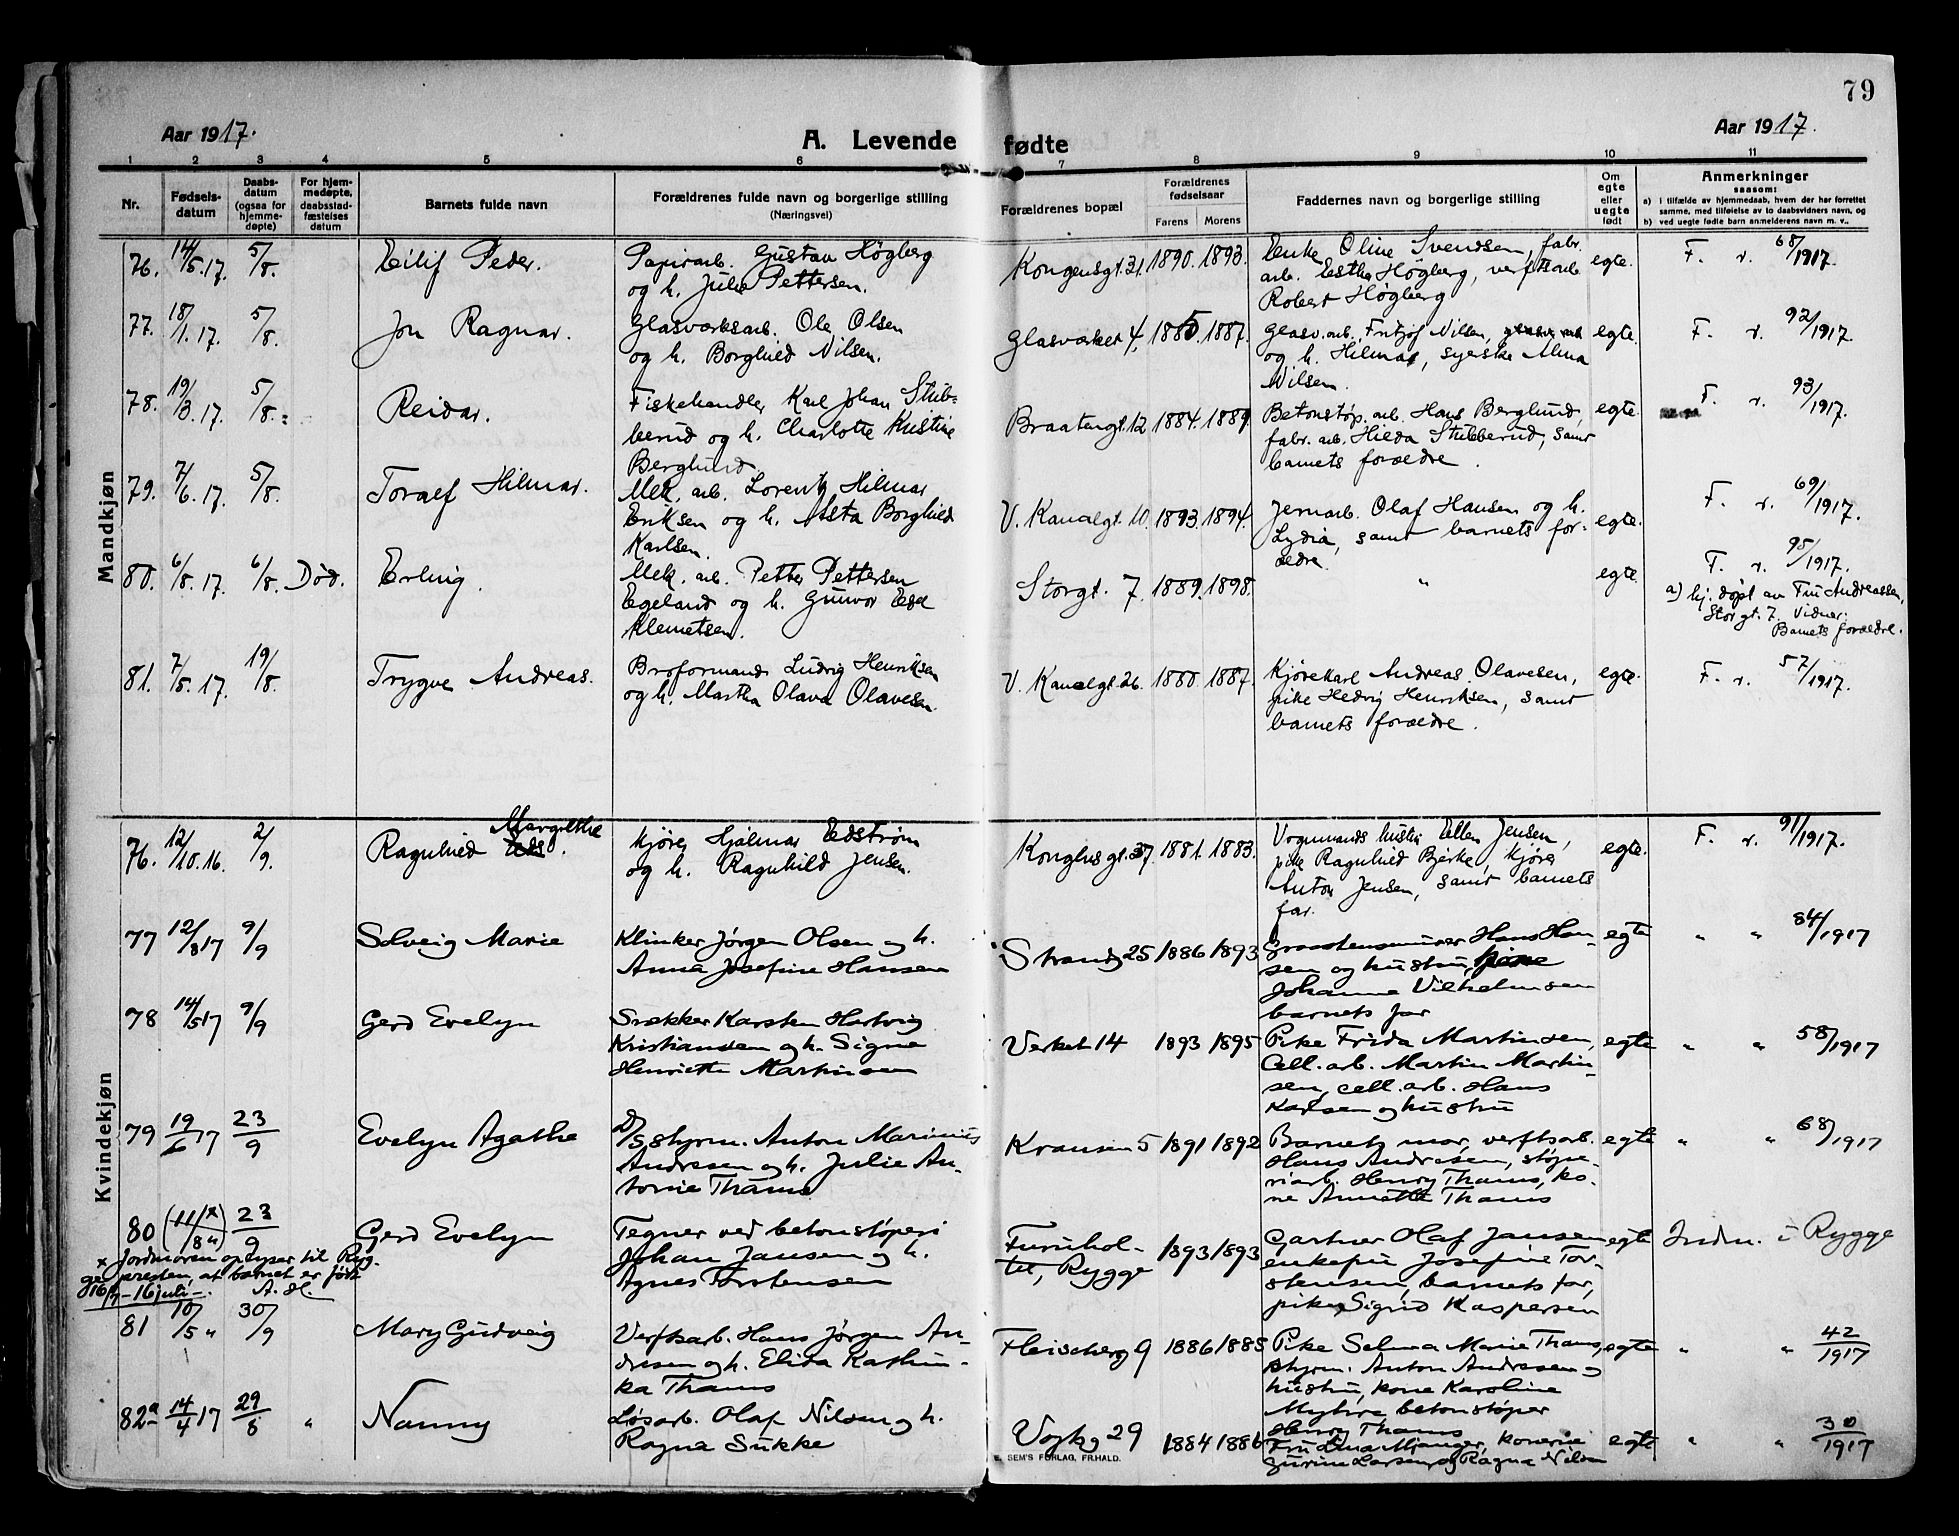 79
Aar 1917.
A. Levende fødte
Aar 1917.
1 2 3 4 5 6 7 8 9 10 11
Nr.
Fødsels-
datum
Daabs-
datum
(ogsaa for
hjemme-
døpte)
For hjem-
medøpte,
daabsstad-
fæstelses
datum
Barnets fulde navn
Forældrenes fulde navn og borgerlige stilling
(Næringsvei)
Forældrenes bopæl
Forældrenes
fødselsaar
Farens Morens
Faddernes navn og borgerlige stilling
Om
egte
eller
uegte
født
Anmerkninger
saasom:
a) i tilfælde av hjemmedaab, hvem der har forrettet
samme, med tilføielse av to daabsvidners navn, og
b) ved uegte fødte barn anmelderens navn m. v.,
Mandkjøn
76. 14/5.17. 5/8. Eilif Peder.
Papirarb. Gustav Høgberg
og h. Julie Pettersen.
Kongensgt. 31. 1890. 1893.
Enke Oline Svendsen, fabr.
arb. Esther Høgberg, verftsarb.
Robert Høgberg
egte. F. v. 68/1917.
77. 18/1.17. 5/8. Jon Ragnar.
Glasværksarb. Ole Olsen
og h. Borghild Nilsen.
Glasværket 4, 1885. 1887.
Glasv. arb. Fritjof Nilsen,
og h. Hilmar, syerske Alma
Nilsen.
egte. F. v. 92/1917.
78. 19/3.17. 5/8. Reidar.
Fiskehandler Karl Johan Stub-
berud og h. Charlotte Kristine
Berglund
Braatengt. 12 1884. 1889.
Betonstøp. arb. Hans Berglund,
fabr. arb. Hilda Stubberud, samt
barnets forældre.
egte. F. v. 93/1917.
79. 7/6.17. 5/8. Toralf Hilmar.
Mek. arb. Lorentz Hilmar
Eriksen og h. Asta Borghild
Karlsen.
V. Kanalgt. 10. 1893. 1894.
Jernarb. Olaf Hansen og h.
Lydia, samt barnets for-
ældre.
egte. F. v. 69/1917.
80. 6/8.17. 6/8. Død. Erling.
Mek. arb. Petter Pettersen
Egeland og h. Gunvor Edel
Klemetsen.
Storgt. 7. 1889. 1898. "
egte. F. v. 95/1917.
a) hj. døpt av Fru Andreassen,
Storgt. 7. Vidner:
Barnets forældre.
81. 7/5.17. 19/8. Trygve Andreas.
Broformand Ludvig Henriksen
og h. Martha Olava Olavesen.
V. Kanalgt. 26. 1880. 1887.
Kjørekarl Andreas Olavesen,
pike Hedvig Henriksen, samt
barnets forældre.
egte. F. v. 57/1917.
Kvindekjøn
76. 12/10.16. 2/9. Ragnhild Margrethe
Kjører Hjalmar Edstrøm
og h. Ragnhild Jensen.
Kongensgt. 37 1881. 1883.
Vognmands hustru Ellen Jensen,
pike Ragnhild Bjerke, kjører
Anton Jensen, samt barnets
far.
egte. F. v. 91/1917.
77 12/8 17 9/9 Solveig Marie
Klinker Jørgen Olsen og h.
Anna Josefine Hansen
Strandg 25 1886 1893
Graastensmurer Hans Han-
sen og hustru,
Johanne Vilhelmsen
barnets far
egte " " 84/1917
78 14/5 17 9/9 Gerd Evelyn
Snekker Karsten Hartvig
Kristiansen og h. Signe
Henriette Martinsen
Verket 14 1893 1895
Pike Frida Martinsen,
Cell. arb. Martin Martin-
sen, cell. arb. Hans
Karlsen og hustru
egte " " 58/1917
79 19/6 17 23/9 Evelyn Agathe
D/S styrm. Anton Marinius
Andresen og h. Julie An-
tonie Thams
Kransen 5 1891 1892
Barnets mor, verftsarb.
Hans Andresen, støpe-
riarb. Henry Thams, ko-
ne Annette Thams
egte " " 68/1917
80 (11/8 " x) 23/9 Gerd Evelyn
Tegner ved betonstøperi
Johan Jansen og h.
Agnes Torstensen
Furuhol-
tet, Rygge 1893 1893
Gartner Olaf Jansen
enkefru Josefine Tor-
stensen, barnets far,
pike Sigrid Kaspersen
egte Indm. i Rygge
x Jordmoren oplyser til Ryg-
ge presten, at barnet er født
16/7 – 16 juli –. A. H.
81 10/5 " 30/9 Mary Gudveig
Verftsarb. Hans Jørgen An-
dresen og h. Elida Kathin-
ka Thams
Fleischerg 9 1886 1885
Pike Selma Marie Thams,
styrm. Anton Andresen og
hustru, kone Karoline
Myhre betonstøper
Henry Thams
egte " " 42/1917
82a 14/4 17 29/8 " Nanny
Løsarb. Olaf Nilsen og h.
Ragna Sukke
Vogtsg 29 1884 1886
Fru Lina Mjanger, konerne
Gurine Larsen og Ragna Nilsen
egte " " 30/1917
E. SEM'S FORLAG, FR.HALD.